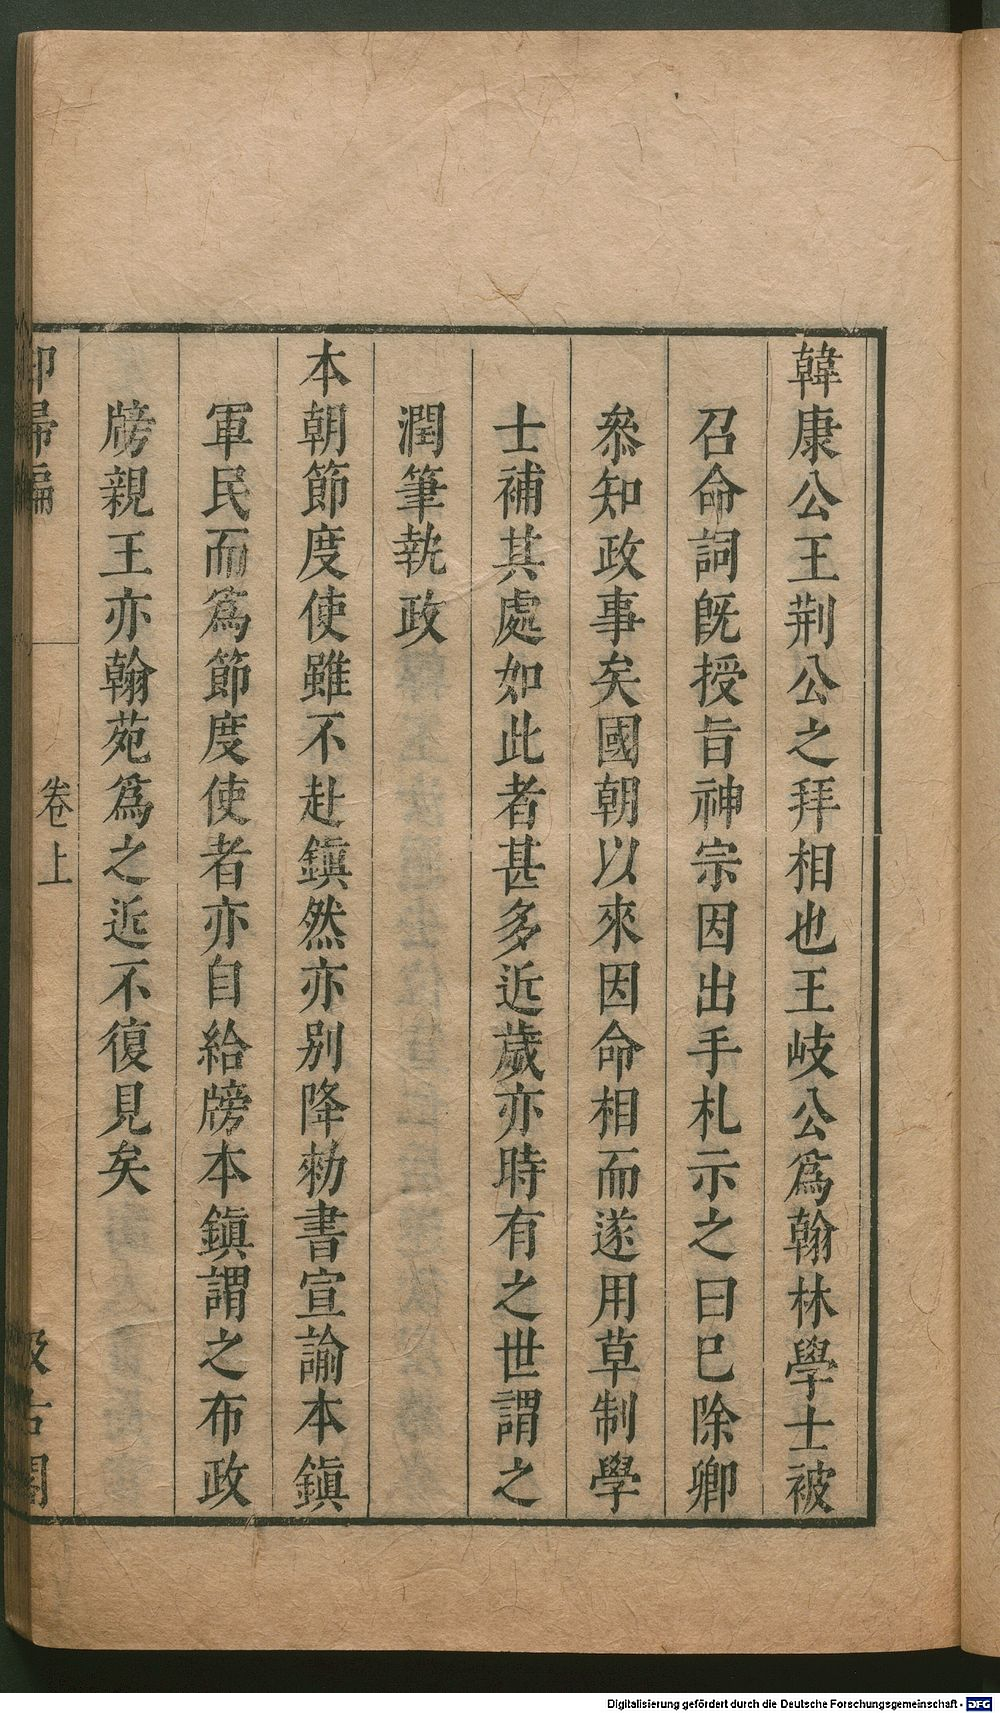 韓康公王荆公之拜相也王岐公爲翰林學士被
召命詞旣授旨神宗因出手札示之曰已除卿
叅知政事矣國朝以來因命相而遂用草制學
士補其處如此者甚多近歲亦時有之世謂之
潤筆執政
本朝節度使雖不赴鎭然亦别降勑書宣諭本鎭
軍民而爲節度使者亦自給牓本鎭謂之布政
牓親王亦翰苑爲之近不復見矣
卻掃編 卷上 汲古閣
Digitalisierung gefördert durch die Deutsche Forschungsgemeinschaft - DFG